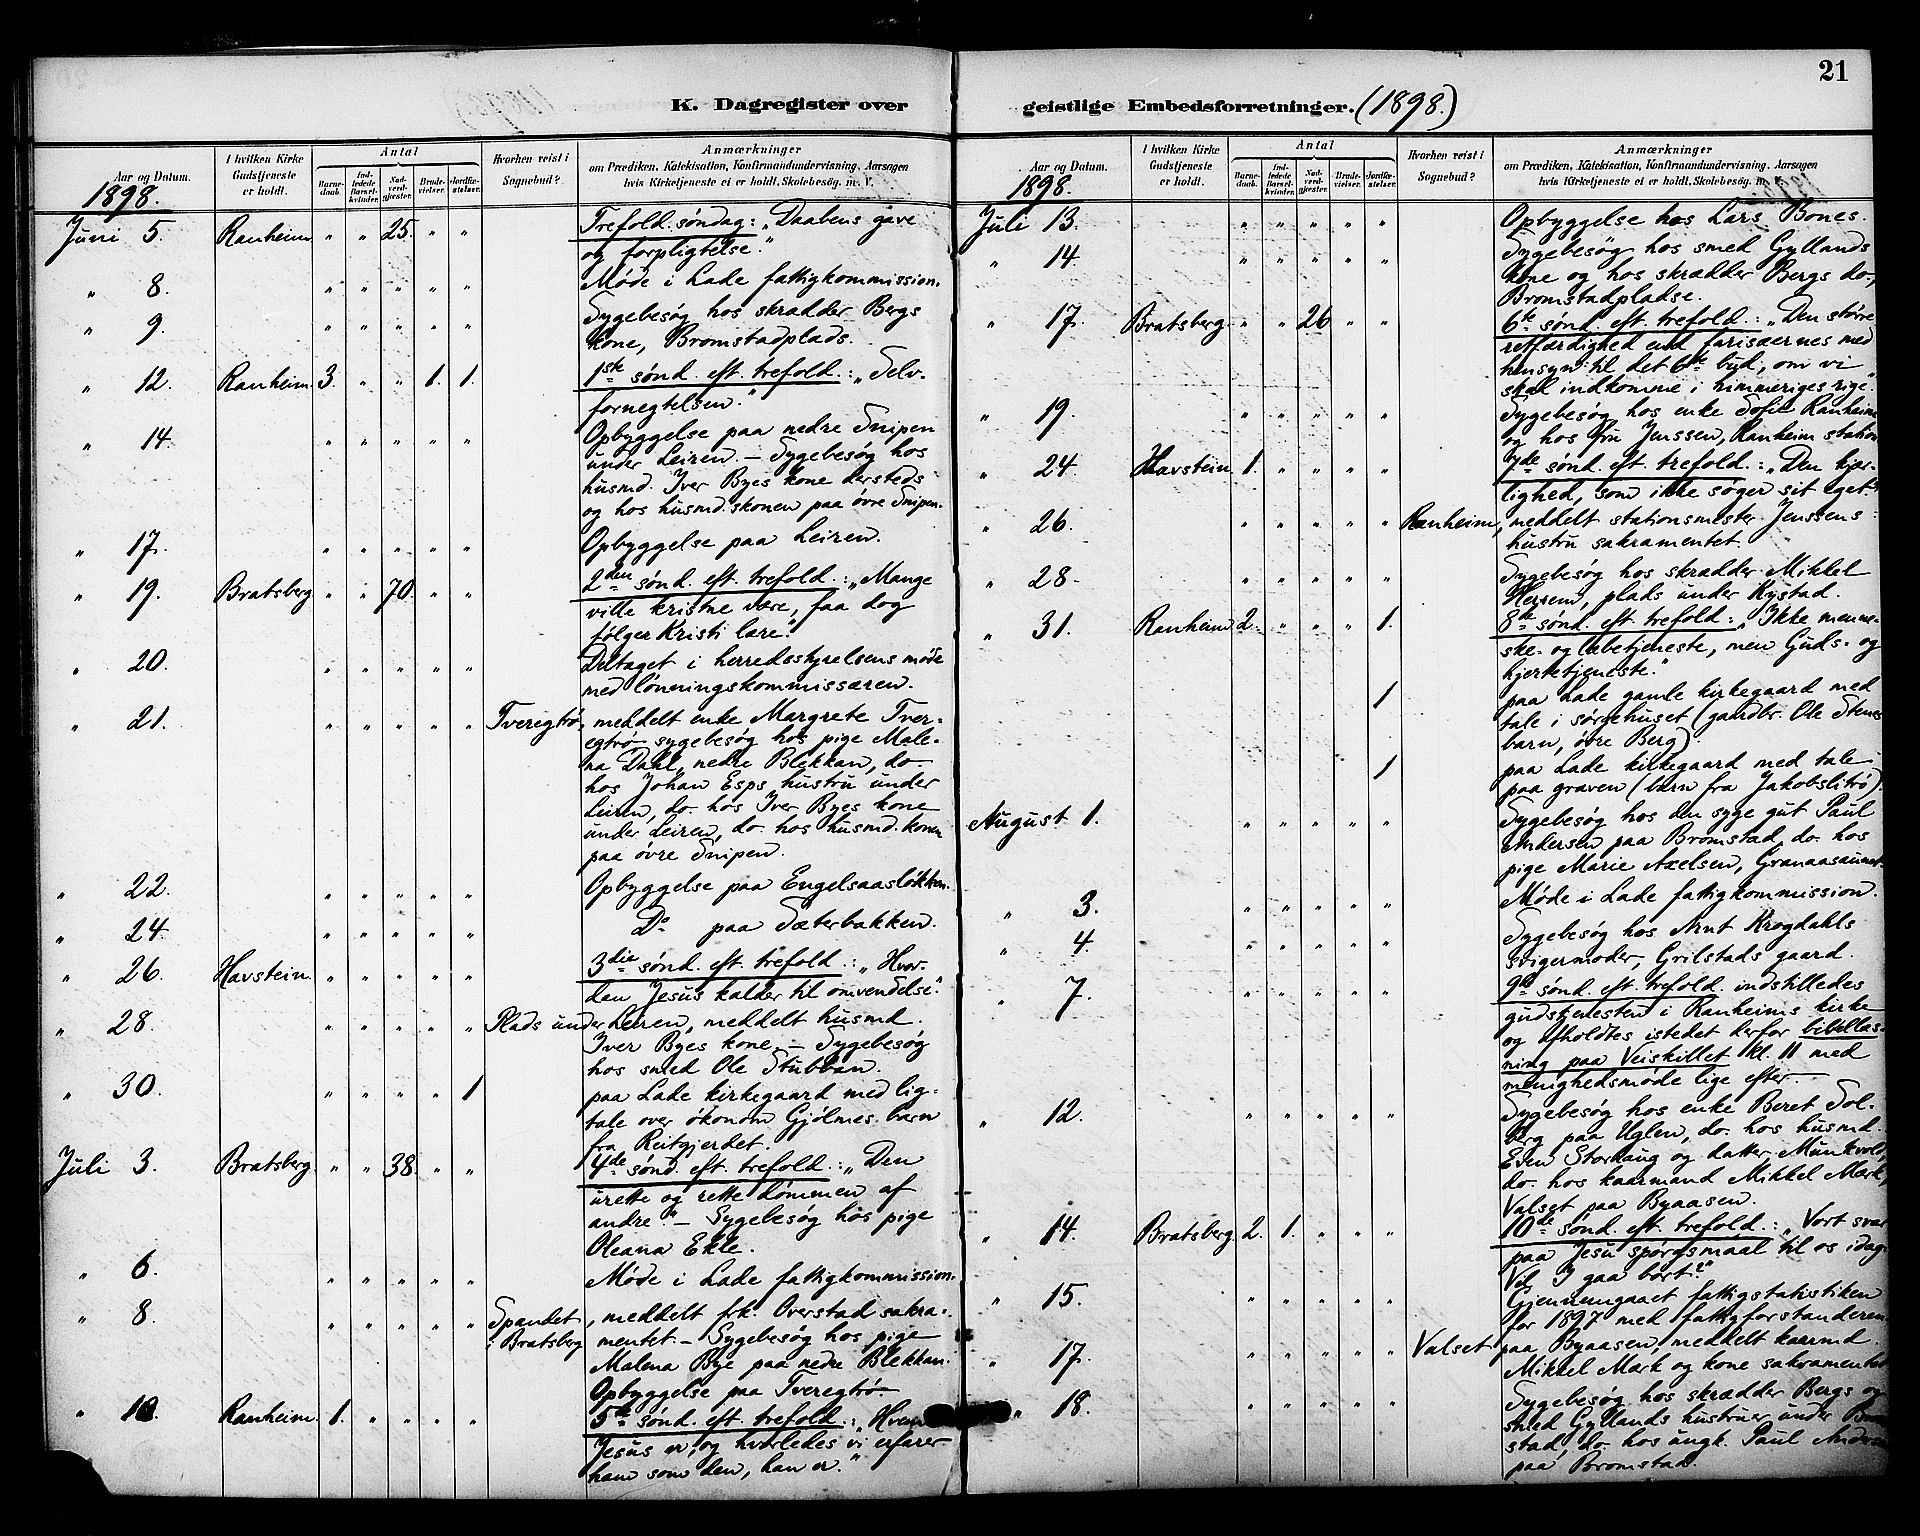 21
K. Dagregister over geistlige Embedsforretninger. (1898.)
Aar og Datum.
I hvilken Kirke Gudstjeneste er holdt.
Antal
Barnedaab.
Indledede Barselkvinder.
Nadverdgjester.
Brudevielser.
Jordfæstelser.
Hvorhen reist i Sognebud?
Anmærkninger
om Prædiken, Katekisation, Konfirmandundervisning, Aarsagen
hvis Kirketjeneste ei er holdt, Skolebesøg. m. V.
1898.
Juni 5. Ranheim " " 25. " " Trefold. søndag: „Daabens gave
og forpligtelse."
" 8. " " " " " Møde i Lade fattigkommission.
" 9. " " " " " Sygebesøg hos skrædder Bergs
kone, Bromstadplads.
" 12. Ranheim. 3. " " 1. 1. 1ste sønd. eft. trefold.: „Selv-
fornegtelsen."
" 14. " " " " " Opbyggelse paa nedre Snipen
under Leiren. – Sygebesøg hos
husmd. Iver Byes kone dersteds
og hos husmd.skonen paa øvre Snipen.
" 17. " " " " " Opbyggelse paa Leiren.
" 19. Bratsberg " " 70. " " 2den sønd. eft. trefold.: „Mange
ville kristne være, faa dog
følger Kristi lære."
" 20. " " " " " Deltaget i herredsstyrelsens møde
med løningskommissæren.
" 21. " " " " " Tveregtrø, meddelt enke Margrete Tver-
egtrø – sygebesøg hos pige Male-
na Dahl, nedre Blekkan, do.
hos Johan Esps hustru under
Leiren, do. hos Iver Byes kone
under Leiren, do. hos husmd. konen
paa øvre Snipen.
" 22. " " " " " Opbyggelse paa Engelsaasløkken.
" 24. " " " " " Do paa Sæterbakken.
" 26. Havstein. " " " " " 3die sønd. eft. trefold.: „Hvor-
den Jesus kalder til omvendelse."
" 28. " " " " " Plads under Leiren, meddelt husmd.
Iver Byes kone. – Sygebesøg
hos smed Ole Stubban.
" 30. " " " " 1 paa Lade kirkegaard med lig-
tale over økonom Gjølmes barn
fra Reitgjerdet.
Juli 3. Bratsberg. " " 38. " " 4de sønd. eft. trefold.: „Den
urette og rette dømmen af
andre." – Sygebesøg hos pige
Oleana Ekle.
" 6. " " " " " Møde i Lade fattigkommission.
" 8. " " " " " Spandet i Bratsberg, meddelt frk. Overstad sakra-
mentet. – Sygebesøg hos pige
Malena Bye paa nedre Blekkan.
Opbyggelse paa Tveregtrø –
" 10. Ranheim. 1. " " " " 5te sønd. eft. trefold.: „Hvem
Jesus er, og hvorledes vi erfarer
ham som den, han er."
Aar og Datum.
I hvilken Kirke Gudstjeneste er holdt.
Antal
Barnedaab.
Indledede Barselkvinder.
Nadverdgjester.
Brudevielser.
Jordfæstelser.
Hvorhen reist i Sognebud?
Anmærkninger
om Prædiken, Katekisation, Konfirmandundervisning, Aarsagen
hvis Kirketjeneste ei er holdt, Skolebesøg. m. V.
1898.
Juli 13. " " " " " Opbyggelse hos Lars Bones.
" 14. " " " " " Sygebesøg hos smed Gyllands
kone og hos skrædder Bergs do.,
Bromstadpladse.
" 17. Bratsberg. " " 26 " " 6te sønd. eft. trefold.: „Den større
retfærdighed end farisæernes med
hensyn til det 6te byd, om vi
skal indkomme i himmeriges rige."
" 19. " " " " " Sygebesøg hos enke Sofie Ranheim
og hos fru Jenssen, Ranheim station
" 24. Havstein. 1. " " " " 7de sønd. eft. trefold.: „Den kjær-
lighed, som ikke søger sit eget."
" 26. " " " " " Ranheim, meddelt stationsmester Jenssens
hustru sakramentet.
" 28. " " " " " Sygebesøg hos skrædder Mikkel
Herrem, plads under Kystad.
" 31. Ranheim 2. " " " 1. 8de sønd. eft. trefold.: „Ikke menne-
ske- og læbetjeneste, men Guds- og
hjertetjeneste."
1 paa Lade gamle kirkegaard med
tale i sørgehuset (gaardbr. Ole Stenes
barn, øvre Berg).
1 paa Lade kirkegaard med tale
paa graven (barn fra Jakobslitrø).
August 1. " " " " " Sygebesøg hos den syge gut Paul
Andersen paa Bromstad, do. hos
pige Marie Axelsen, Granaasaunet.
" 3. " " " " " Møde i Lade fattigkommission.
" 4. " " " " " Sygebesøg hos Arnt Krogdahls
svigermoder, Grilstads gaard.
" 7. " " " " " 9de sønd. eft. trefold. indstilledes
gudstjenesten i Ranheims kirke
og afholdtes istedet derfor bibellæs-
ning paa Veiskillet kl. 11 med
menighedsmøde lige efter. –
" 12. " " " " " Sygebesøg hos enke Beret Sol-
berg paa Uglen, do. hos husmd.
Even Storhaug og datter, Munkvold,
do. hos kaarmand Mikkel Mærk,
Valset paa Byaasen.
" 14. Bratsberg. 2. 1. " " " 10de sønd. eft. trefold.: „Vort svar
paa Jesu spørgsmaal til os idag:
Vil I gaa bort?"
" 15. " " " " " Gjennemgaaet fattigstatistiken
for 1897 med fattigforstanderen
" 17. " " " " " Valset paa Byaasen, meddelt kaarmd.
Mikkel Mærk og kone sakramentet
" 18. " " " " " Sygebesøg hos skrædder Bergs og
smed Gyllands hustruer under Brom-
stad, do. hos ungk. Paul Andersen
paa Bromstad.